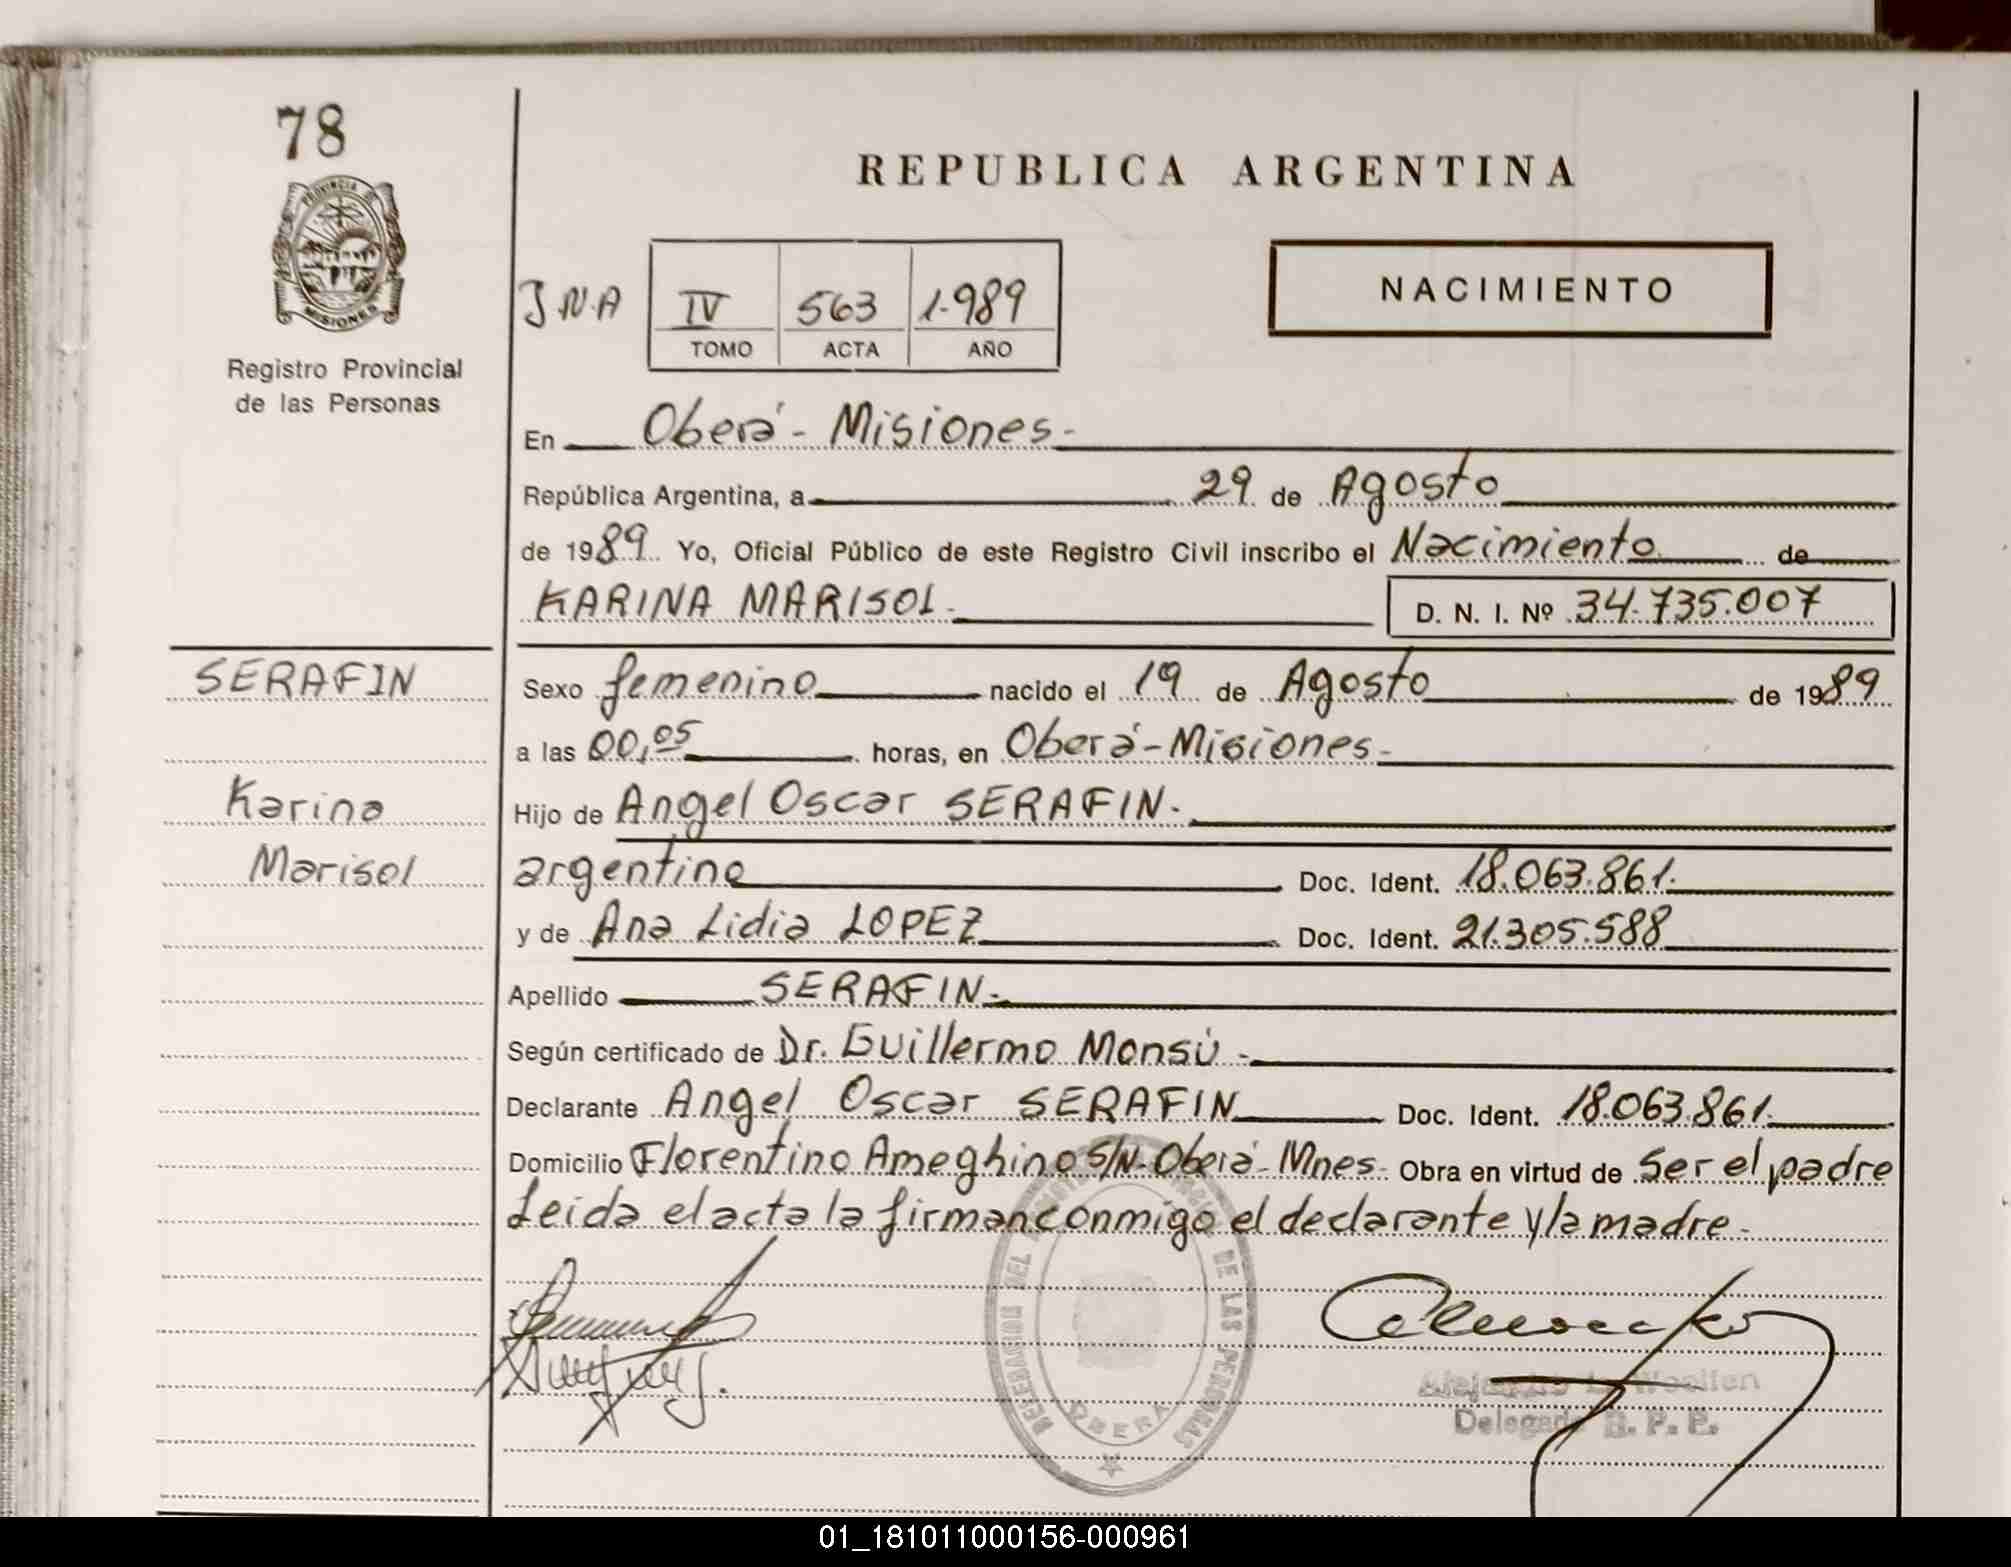 78
PROVINCIA DE
MISIONES
Registro Provincial
de las Personas
REPUBLICA ARGENTINA
J.N.A IV 563 1.989
TOMO ACTA AÑO
NACIMIENTO
En Oberá - Misiones -
República Argentina, a 29 de Agosto
de 1989 Yo, Oficial Público de este Registro Civil inscribo el Nacimiento de
KARINA MARISOL. D. N. I. Nº 34.735.007
SERAFIN
Karina
Marisol
Sexo femenino nacido el 19 de Agosto de 1989
a las 00,05 horas, en Oberá - Misiones -
Hijo de Angel Oscar SERAFIN.
argentino Doc. Ident. 18.063.861.
y de Ana Lidia LOPEZ Doc. Ident. 21.305.588
Apellido SERAFIN -
Según certificado de Dr. Guillermo Monsú -
Declarante Angel Oscar SERAFIN Doc. Ident. 18.063.861.
Domicilio Florentino Ameghino S/N - Oberá - Mnes - Obra en virtud de Ser el padre
Leida el acta la firman conmigo el declarante y la madre -
DE LAS PERSONAS
OBERA
Delegado
01_181011000156-000961